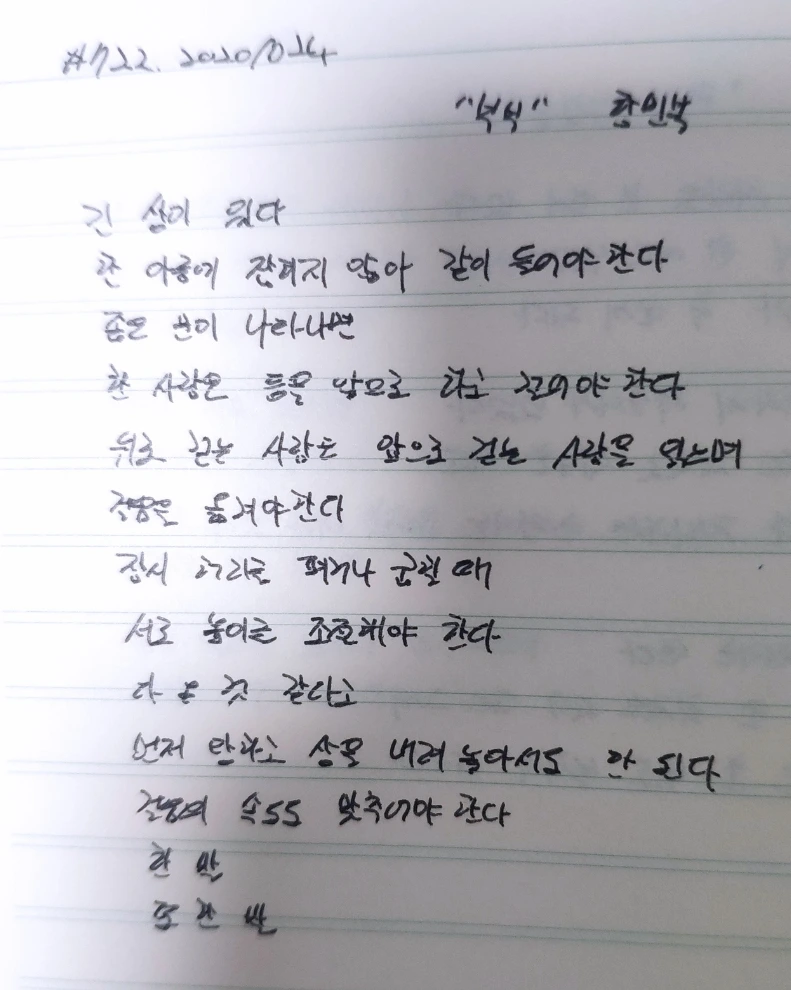 #722. 20201024
"부부" 함민복
긴 상이 있다
한 아름에 잡히지 않아 같이 들어야 한다
좁은 문이 나타나면
한 사람은 등을 앞으로 하고 걸어야 한다
뒤로 걷는 사람은 앞으로 걷는 사람을 읽으며
걸음을 옮겨야 한다
잠시 허리를 펴거나 굽힐 때
서로 높이를 조절해야 한다
다 온 것 같다고
먼저 탕하고 상을 내려 놓아서도 안 된다
걸음의 속도도 맞추어야 한다
한 발
또 한 발